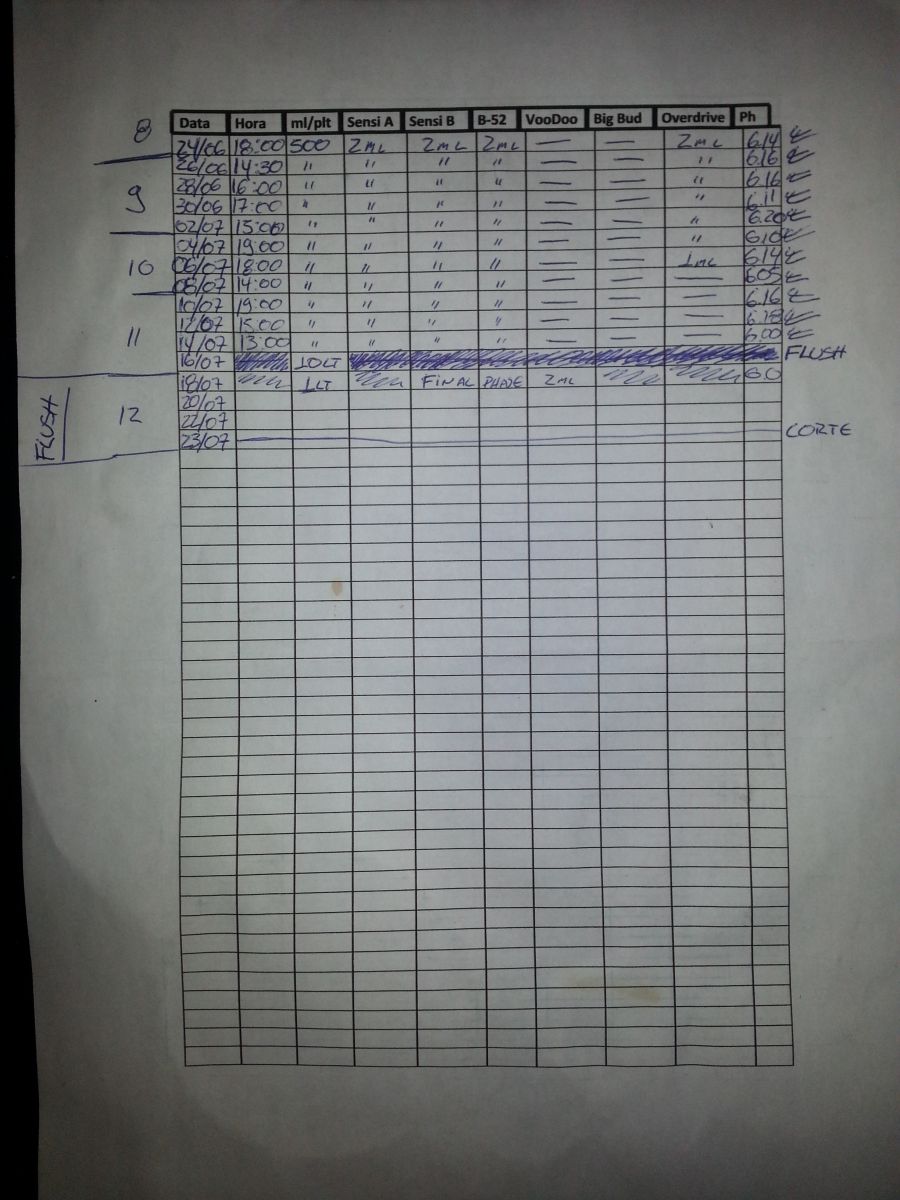 Data Hora ml/plt Sensi A Sensi B B-52 VooDoo Big Bud Overdrive Ph
8 24/06 18:00 500 2ML 2ML 2ML — — 2ML 6.14
26/06 14:30 " " " " — — " 6.16
28/06 16:00 " " " " — — " 6.16
9 30/06 17:00 " " " " — — " 6.11
02/07 15:00 " " " " — — " 6.20
04/07 19:00 " " " " — — " 6.10
10 06/07 18:00 " " " " — — 1ML 6.14
08/07 14:00 " " " " — — — 6.05
10/07 19:00 " " " " — — — 6.16
12/07 15:00 " " " " — — — 6.18
11 14/07 13:00 " " " " — — — 6.00
16/07 10LT FLUSH
18/07 1LT FINAL PHASE 2ML 6.0
20/07
FLUSH 12 22/07
23/07 CORTE